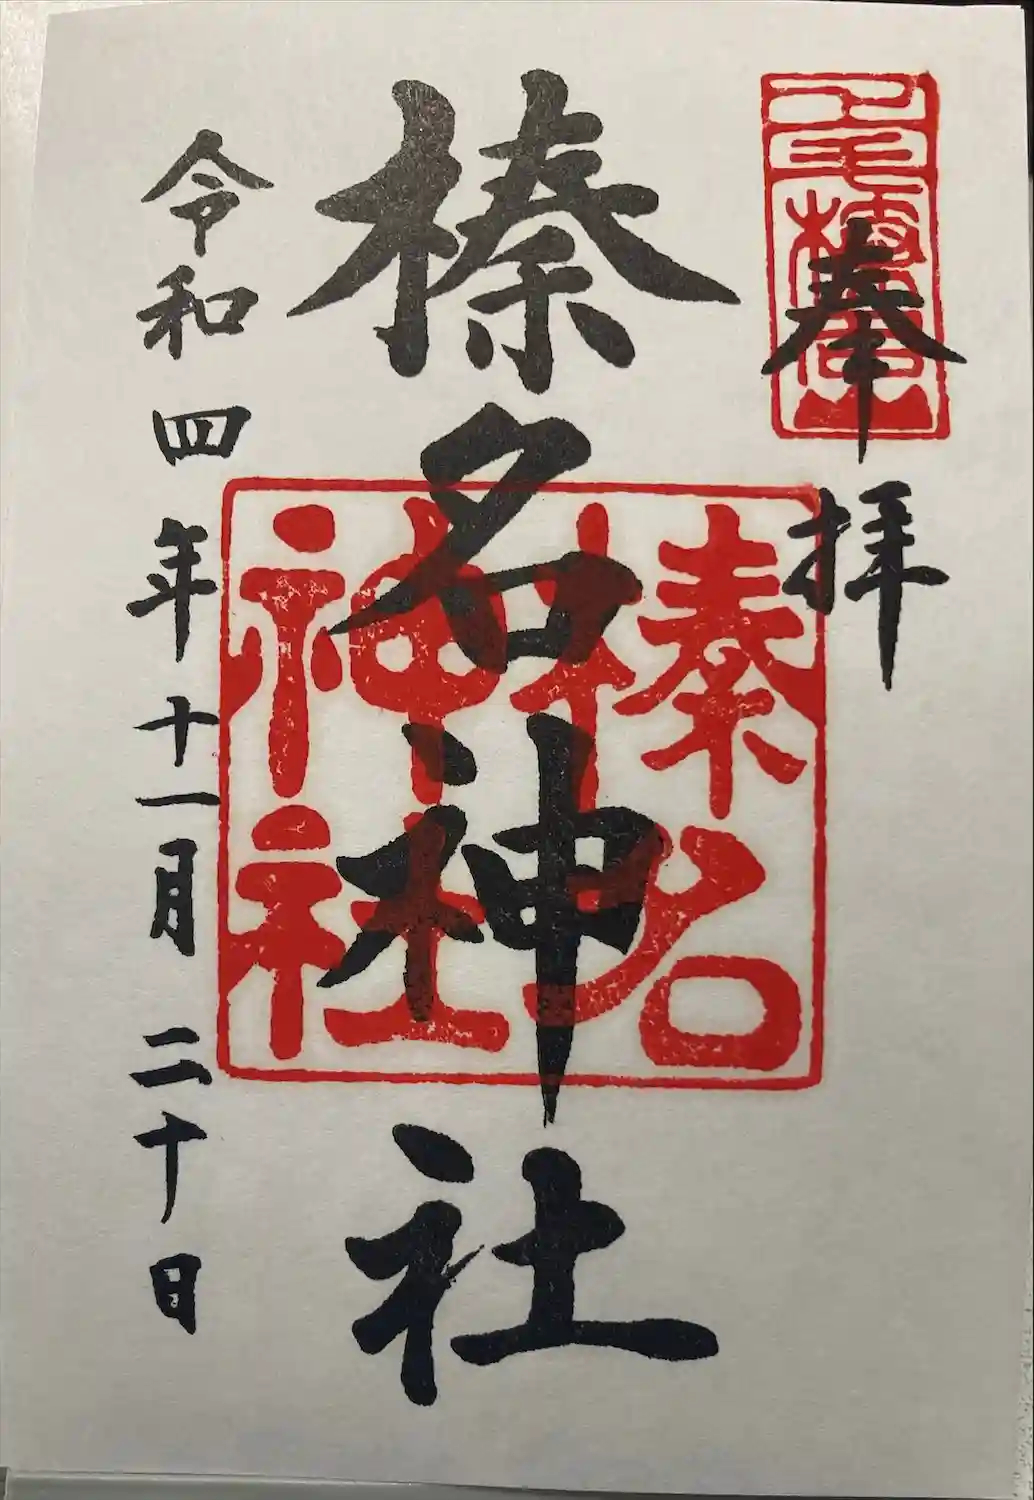 奉拝
榛名神社
榛名
神社
令和四年十一月二十日